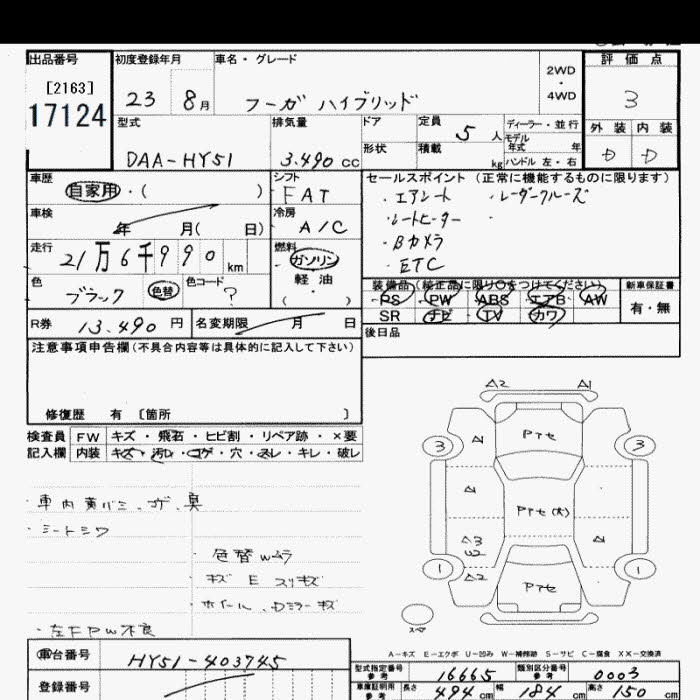 出品番号 初度登録年月 車名・グレード 2WD・4WD 評価点
[2163]
17124 23 8月 フーガ ハイブリッド 3
型式 排気量 ドア 定員 5人 ディーラー・並行 外装 内装
モデル年式 年
DAA-HY51 3.490cc 形状 積載 kg ハンドル 左・右 D D
車歴 シフト セールスポイント (正常に機能するものに限ります)
自家用・( ) FAT ・エアシート ・レーダークルーズ
車検 冷房 ・シートヒーター ・
年 月( 日) A/C ・Bカメラ
走行 燃料 ・ETC
21万6千990km ガソリン
色 色コード 軽油 装備品 (純正品に限り○をつけてください) 新車保証書
ブラック 色替 ? ・( ) PS PW ABS エアB AW 有・無
R券 13.490円 名変期限 月 日 SR ナビ TV カワ
後日品
注意事項申告欄(不具合内容等は具体的に記入して下さい)
修復歴 有 〔箇所 〕
検査員 FW キズ・飛石・ヒビ割・リペア跡・×要
記入欄 内装 キズ・汚レ・コゲ・穴・スレ・キレ・破レ
A2 A1
3 A1 Pテセ 3
A1 Pテセ(大)
A3 W2 A1
1 A2 Pテセ 1
スペア
・車内黄バミ、コゲ、臭
・シートシワ
・色替Wムラ
・キズ E スリキズ
・ホイール、Dミラーキズ
・左FPW不良
A-キズ E-エクボ U-凹み W-補修跡 S-サビ C-腐食 XX-交換済
車台番号 HY51-403745 型式指定番号 参考 16665 類別区分番号 参考 0003
登録番号 車庫証明用 参考 長さ 494cm 幅 184cm 高さ 150cm